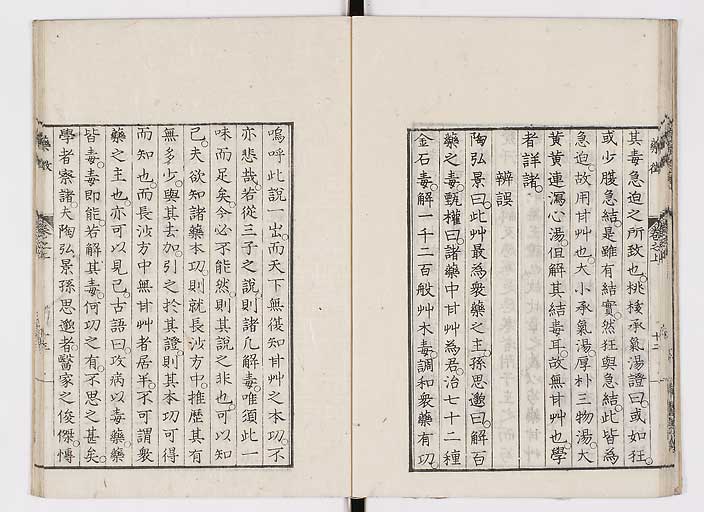 其毒急迫之所致也。桃核承氣湯證曰。或如狂。
或少腹急結。是雖有結實。然狂與急結。此皆為
急迫。故用甘艸也。大小承氣湯。厚朴三物湯。大
黃黃連瀉心湯。但解其結毒耳。故無甘艸也。學
者詳諸。
辨誤
陶弘景曰。此艸最為衆藥之主。孫思邈曰。解百
藥之毒。甄權曰。諸藥中甘艸為君。治七十二種
金石毒。解一千二百般艸木毒。調和衆藥有功。
藥徵
卷之上
十二
嗚呼此說一出。而天下無復知甘艸之本功。不
亦悲哉。若從三子之說。則諸凡解毒。唯須此一
味而足矣。今必不能然。則其說之非也。可以知
已。夫欲知諸藥本功。則就長沙方中。推歷其有
無多少。與其去加。引之於其證。則其本功可得
而知也。而長沙方中無甘艸者居半。不可謂衆
藥之主也。亦可以見已。古語曰。攻病以毒藥。藥
皆毒。毒即能。若解其毒。何功之有。不思之甚矣。
學者察諸。夫陶弘景孫思邈者。醫家之俊傑。博
藥徵